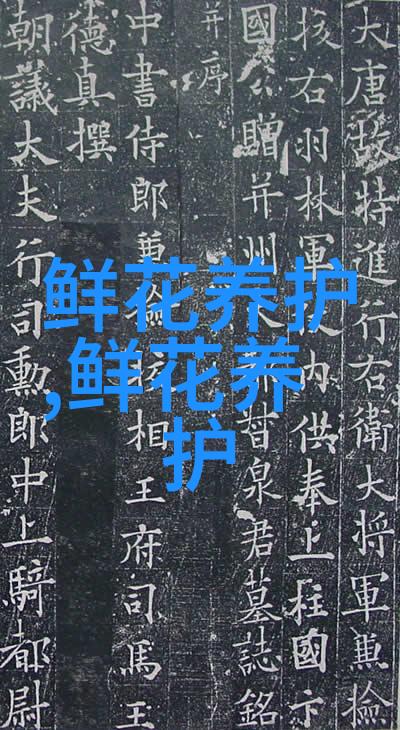 大唐故特進行右衛大將軍兼撿
校右羽林軍内供奉上柱國卞
國公贈并州督泉君墓誌銘
并序
中書侍郎兼撿校相王府司馬王
德真撰
朝議大夫行司勳郎中上騎都尉
鲜花养护
,鲜花养
护